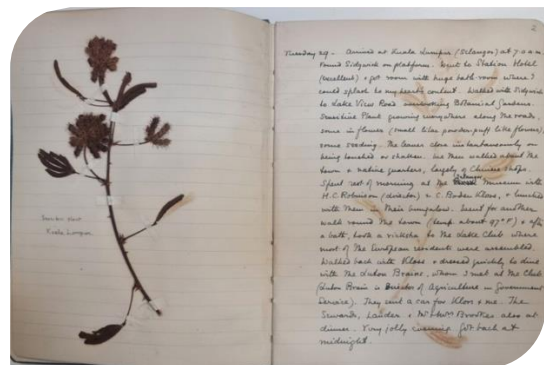 Sensitive Plant
Kuala Lumpur
2
Tuesday 29 - Arrived at Kuala Lumpur (Selangor) at 7.0 a.m.
Found Sidgwick on platform. Went to Station Hotel
(excellent) & got room with huge bath room where I
could splash to my heart's content. Walked with Sidgwick
to Lake View Road Botanical Gardens.
Sensitive Plant growing everywhere along the roads,
some in flower (small lilac powder-puff like flowers),
some seeding. The leaves close instantaneously on
being touched or shaken. We then walked about the
town & native quarters, largely of Chinese shops.
Spent rest of morning at the Selangor Museum with
H.C. Robinson (director) & C. Boden Kloss, & lunched
with them in their bungalow. Went for another
walk round the town (temp about 97° F) & after
a bath, took a ricksha to the Lake Club where
most of the European residents were assembled.
Walked back with Kloss & dressed quickly to dine
with the Luton Brains, whom I met at the Club
(Luton Brain is Director of Agriculture in Government
Service). They sent a car for Kloss & me. The
Sewards, Lauder & Mr & Mrs Brookes also at
dinner. Very jolly evening got back at
midnight.